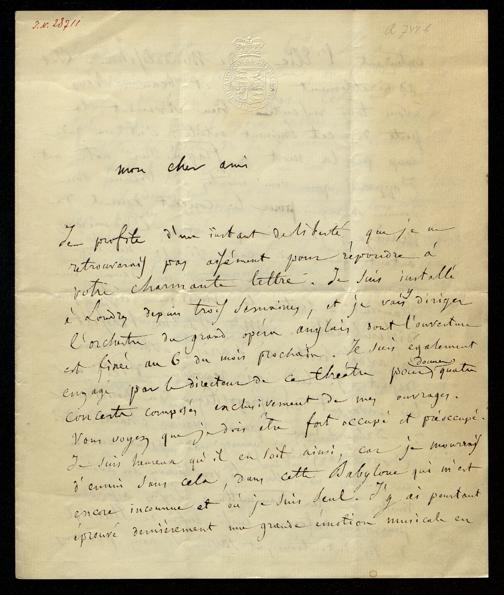 I.N. 28711
mon cher ami
Je profite d'un instant de liberté que je ne
retrouverais pas aisément pour répondre à
votre charmante lettre. Je suis installé
à Londres depuis trois semaines, et je vais y diriger
l'orchestre du grand opera anglais dont l'ouverture
est fixée au 6 du mois prochain. Je suis également
engagé par le directeur de ce théatre pour donner quatre
concerts composés exclusivement de mes ouvrages.
Vous voyez que je dois être fort occupé et préoccupé.
Je suis heureux qu'il en soit ainsi, car je mourrais
d'ennui sans cela, dans cette Babylone qui m'est
encore inconnue et où je suis seul. J'y ai pourtant
éprouvé dernièrement une grande émotion musicale en